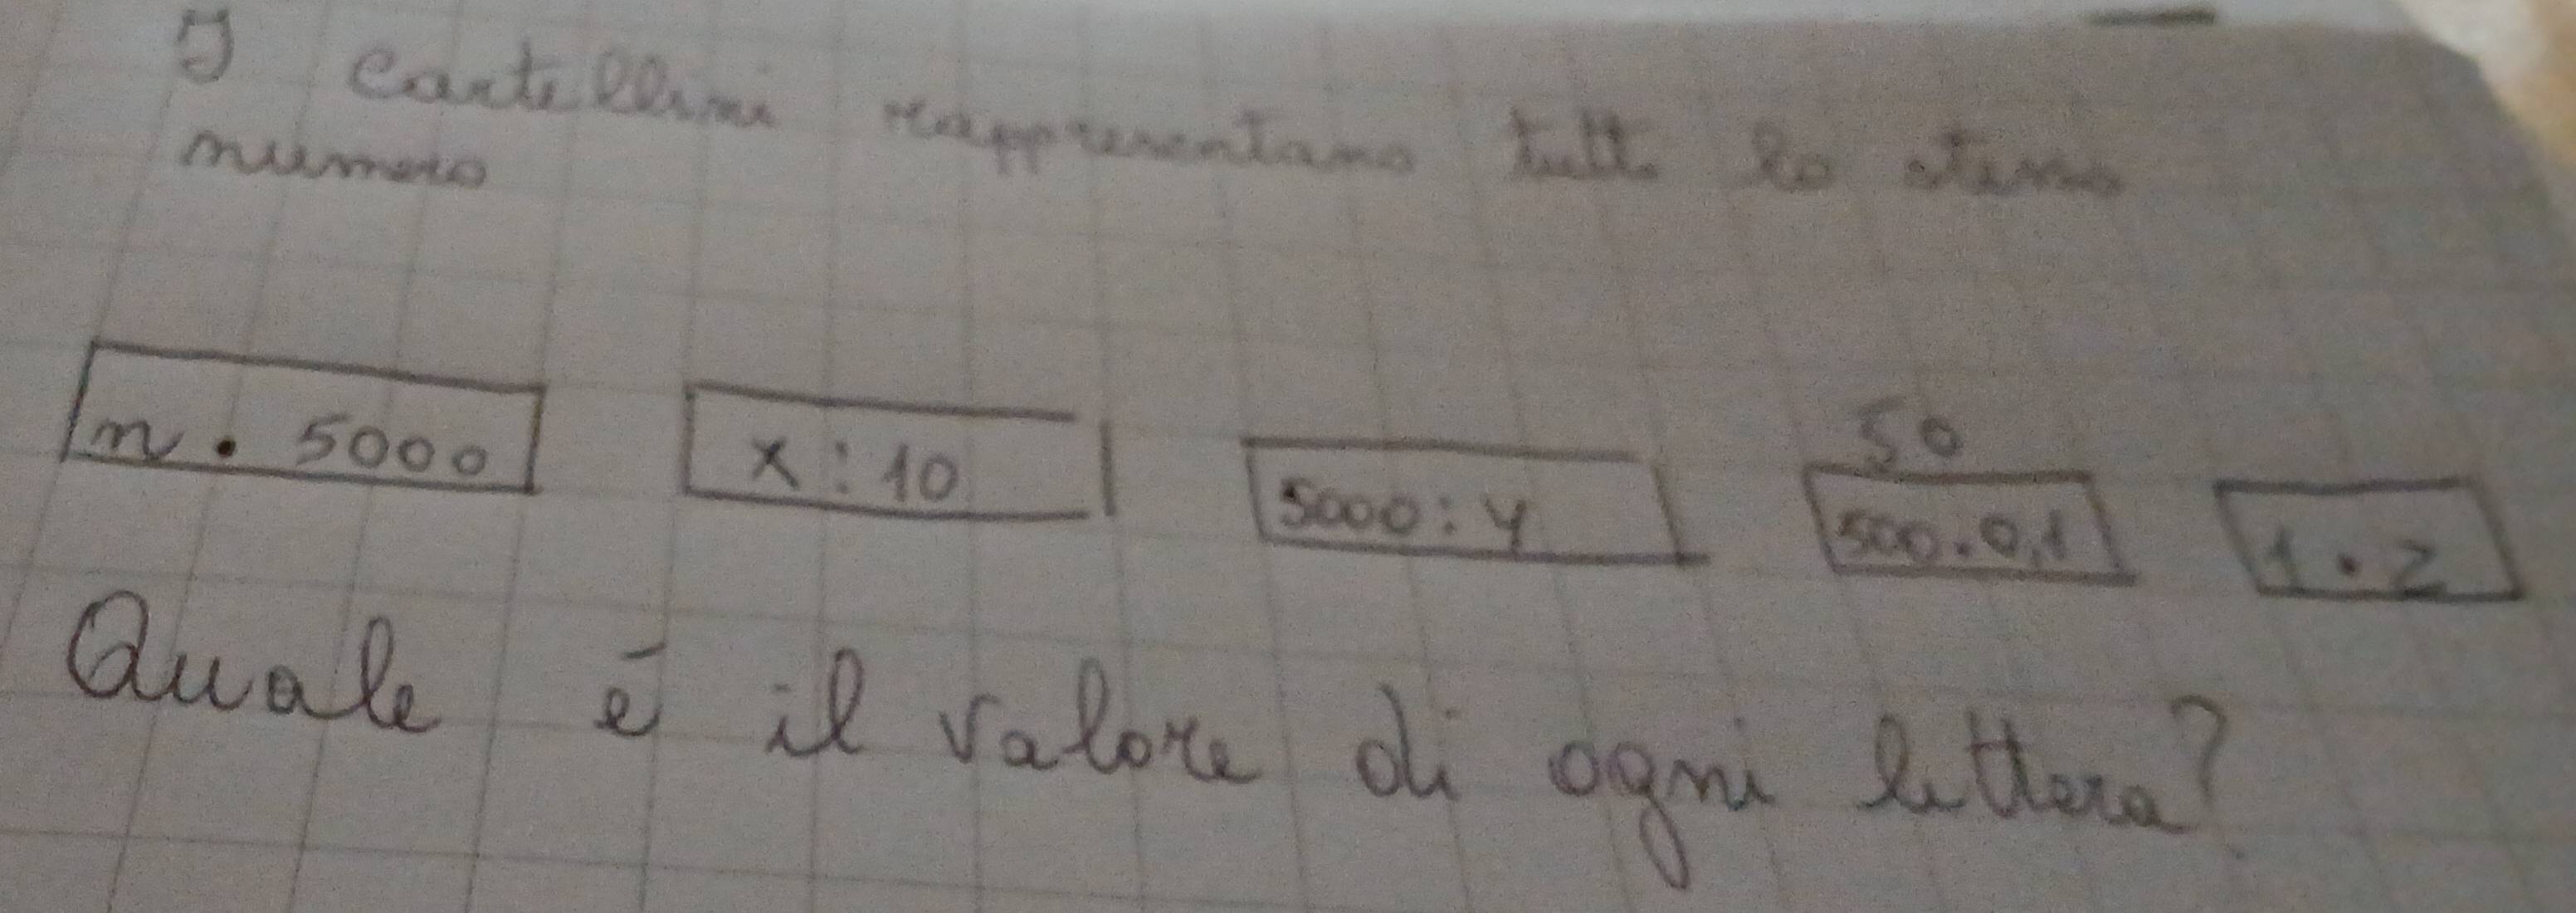 I cartellini rappresentano tutti lo stesso
numero
50
n . 5000 x : 10 5000 : y 500 . 0,1 1 . z
Quale é il valore di ogni lettera?